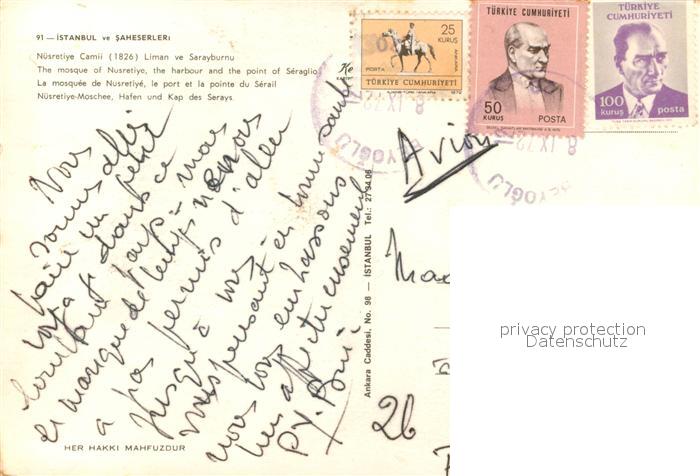 91 — İSTANBUL ve ŞAHESERLERİ
Nüsretiye Camii (1826) Liman ve Sarayburnu
The mosque of Nusretiye, the harbour and the point of Séraglio
La mosquée de Nusretiyé, le port et la pointe du Sérail
Nüsretiye-Moschee, Hafen und Kap des Serays.
25
KURUŞ
POSTA
TÜRKİYE CUMHURİYETİ
TÜRKİYE CUMHURİYETİ
50
KURUŞ
POSTA
TÜRKİYE
CUMHURİYETİ
100
kuruş
posta
BEYOĞLU
8 IX 72
Avion
Nous
sommes allés
faire un petit
dans ce
mais
le manque de temps ne nous
a pas permis d'aller
jusqu'à
vous
pensant en bonne santé
nous vous embrassons
bien affectueusement
Ankara Caddesi, No. 98 — İSTANBUL Tel.: 27 34 06
26
HER HAKKI MAHFUZDUR
privacy protection
Datenschutz